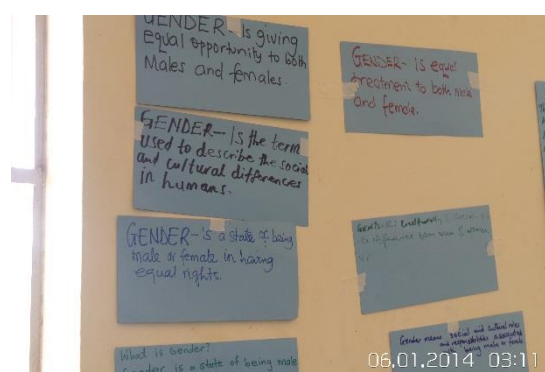 GENDER- Is giving
equal opportunity to both
Males and females.
GENDER- Is the term
used to describe the social
and cultural differences
in humans.
GENDER- is a state of being
male or female in having
equal rights.
What is Gender?
Gender is a state of being male
GENDER- is equal
treatment to both male
and female.
Gender means social and cultural roles
and responsibilities associated
being male or female
06.01.2014 03:11